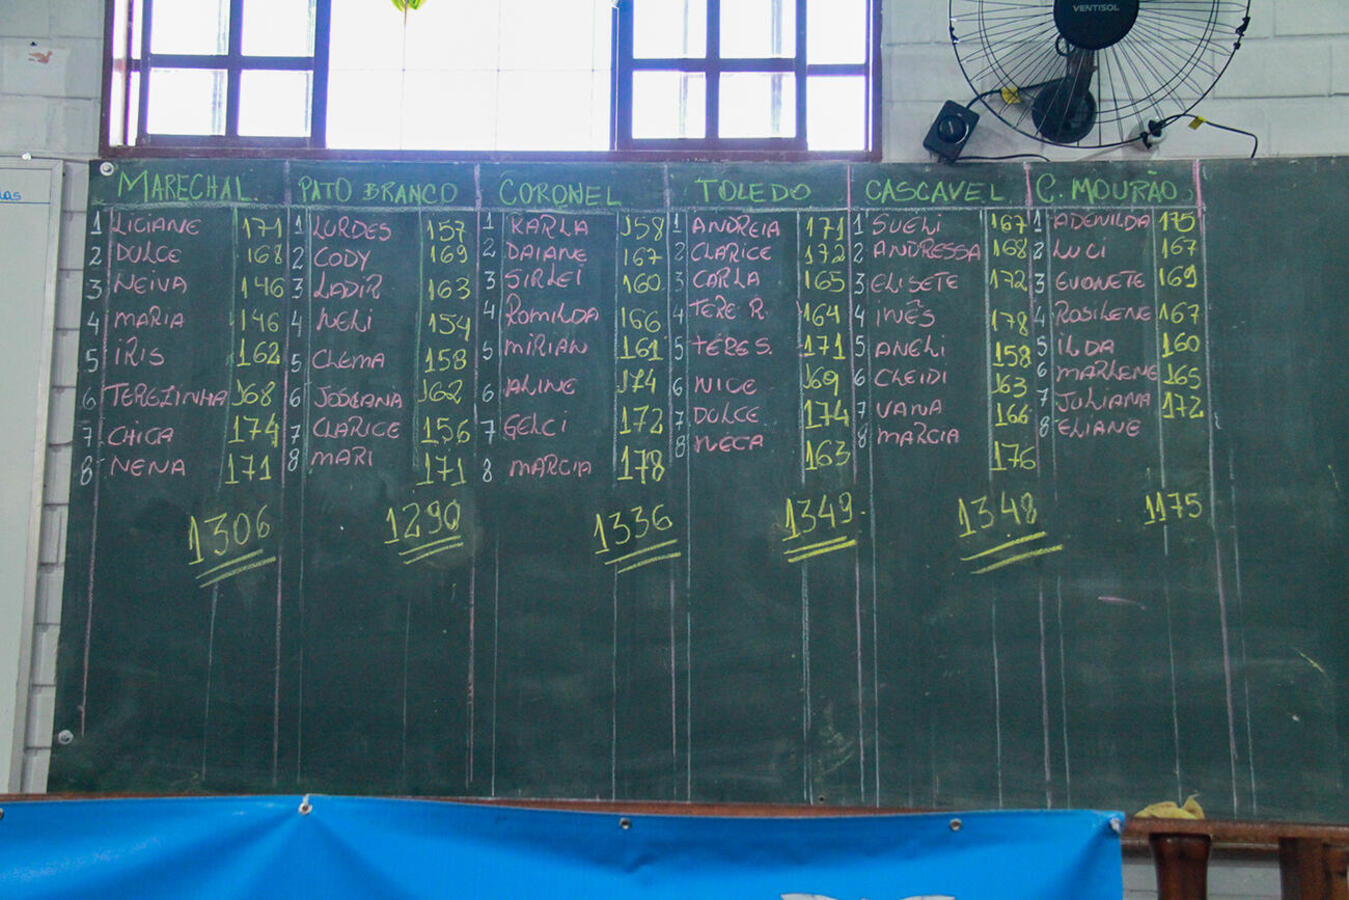 VENTISOL
MARECHAL.
1 LICIANE 171
2 DULCE 168
3 NEIVA 146
4 MARIA 146
5 IRIS 162
6 TEREZINHA 168
7 CHICA 174
8 NENA 171
1306
PATO BRANCO
1 LURDES 157
2 CODY 169
3 LADIR 163
4 NELI 154
5 CLEMA 158
6 JOSEANA 162
7 CLARICE 156
8 MARI 171
1290
CORONEL
1 KARLA 158
2 DAIANE 167
3 SIRLEI 160
4 ROMILDA 166
5 MIRIAN 161
6 ALINE 174
7 GELCI 172
8 MARCIA 178
1336
TOLEDO
1 ANDREIA 171
2 CLARICE 172
3 CARLA 165
4 TERE R. 164
5 TERE S. 171
6 NICE 169
7 DULCE 174
8 NECA 163
1349
CASCAVEL
1 SUELI 167
2 ANDRESSA 168
3 ELISETE 172
4 INÊS 178
5 ANELI 158
6 CLEIDI 163
7 VANA 166
8 MARCIA 176
1348
C. MOURÃO
1 ADENILDA 175
2 LUCI 167
3 EVONETE 169
4 ROSILENE 167
5 ILDA 160
6 MARLENE 165
7 JULIANA 172
8 ELIANE
1175